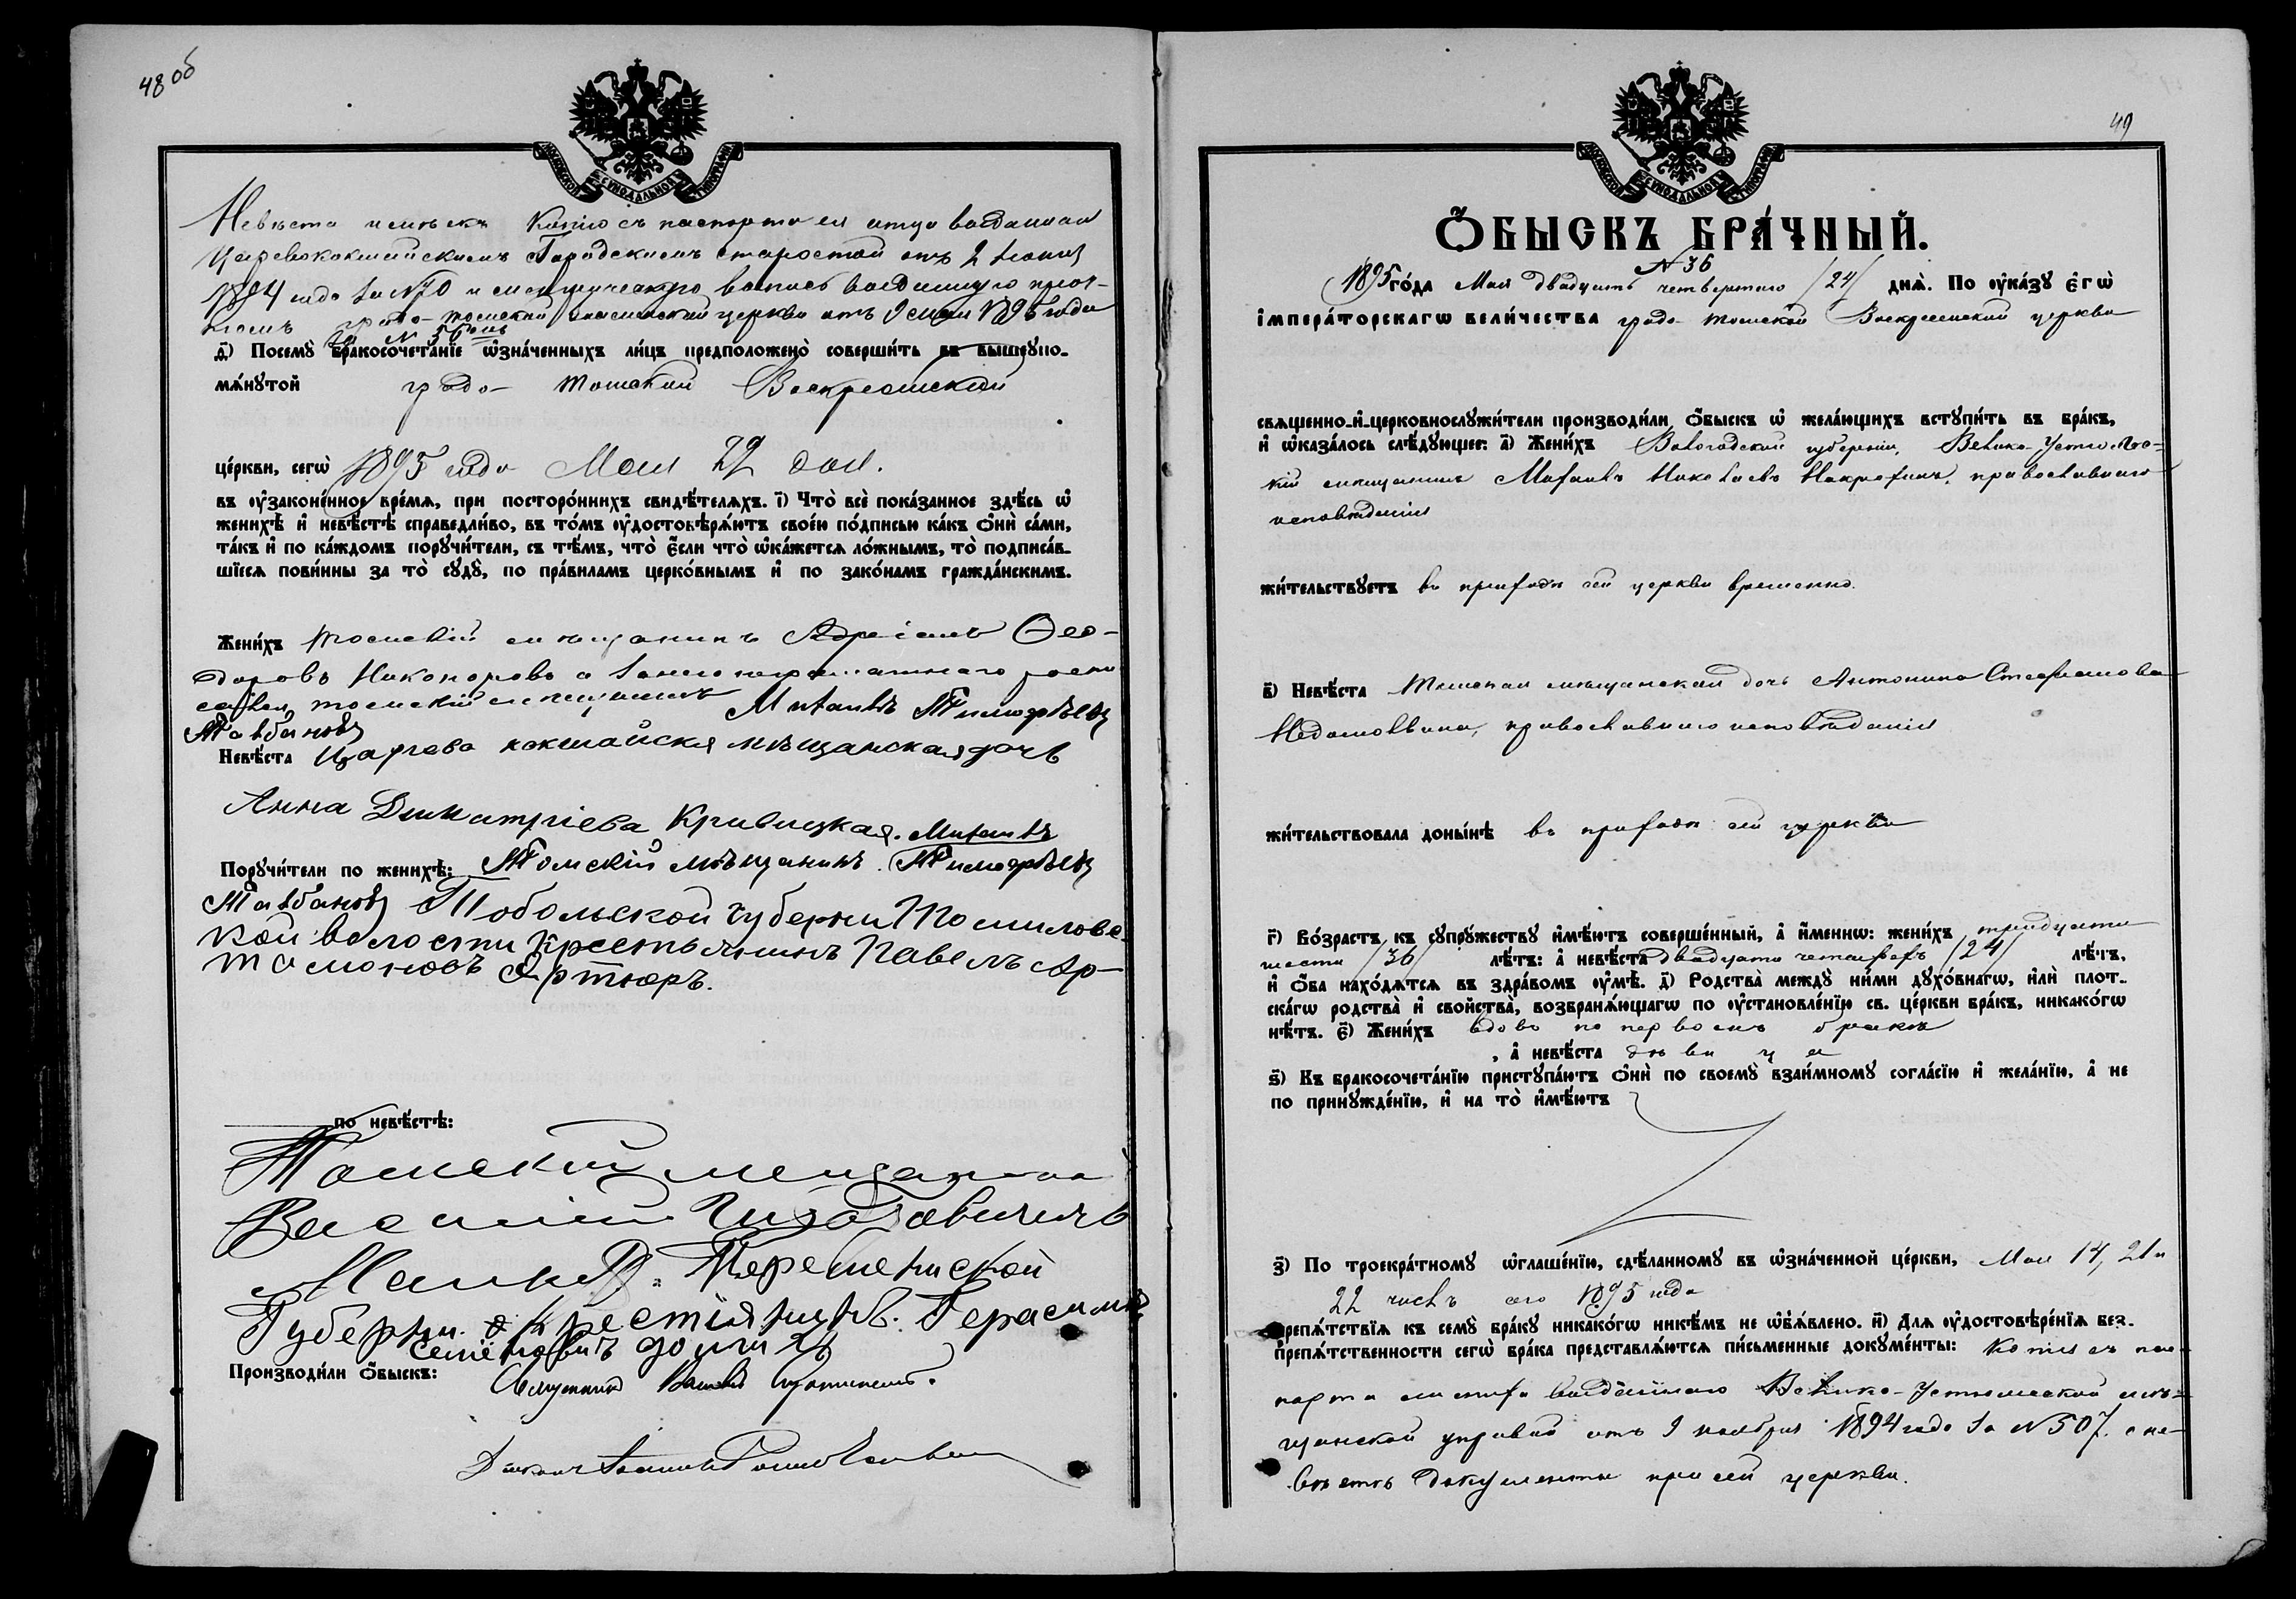 48 об
МОСКОВСКОЙ СѴНОДАЛЬНОЙ ТИПОГРАФІИ
Невѣста имѣетъ Копію съ паспорта ея отца выданнаго
Царевококшайскимъ Городскимъ старостой отъ 2 Іюня
1894 года за № 70 и метрическую выпись выданную прич-
томъ градо-томской церкви отъ 9 мая 1895 года
за № 56
ѳ҃) Посемꙋ̀ бракосочета́нїе ѡ҆зна́ченныхъ ли́цъ предположено̀ соверши́ть въ вышеꙋпо-
мѧ́нꙋтой градо- томской Воскресенской
це́ркви, сегѡ̀ 1895 года Мая 29 дня.
въ ѹ҆зако́ненное вре́мѧ, при посторо́ннихъ свидѣ́телѧхъ. і҃) Что̀ всѐ пока́занное здѣ́сь ѡ҆
женихѣ̀ и҆ невѣ́стѣ справедли́во, въ то́мъ ѹ҆достовѣрѧ́ютъ свое́ю по́дписью ка́къ ѻ҆нѝ са́ми,
та́къ и҆ по ка́ждомъ порꙋчи́тели, съ тѣ́мъ, что̀ є҆́сли что̀ ѡ҆ка́жетсѧ ло́жнымъ, то̀ подписа́в-
шїесѧ пови́нны за то̀ сꙋдꙋ̀, по пра́виламъ церко́внымъ и҆ по зако́намъ гражда́нскимъ.
Жени́хъ томскій мѣщанинъ Адріанъ Ѳео-
доровъ Никоноровъ а за него неграмотнаго роспи
сался томскій мѣщанинъ Михаилъ Тимофѣевъ
Невѣ́ста Царево кокшайская мѣщанская дочь
Анна Димитріева Кривицкая. Михаилъ
Порꙋчи́тели по женихѣ̀: Томскій мѣщанинъ Тимофѣевъ
Тобольской губерни
кой волости Крестьянинъ Павелъ Ар-
тамоновъ Артюръ.
по невѣ́стѣ:
Томский мещанинъ
Василий
Губерни крестіянинъ. Герасимъ
Произво́дили ѻ҆́быскъ:
49
МОСКОВСКОЙ СѴНОДАЛЬНОЙ ТИПОГРАФІИ
Ѻ҆́БЫСКЪ БРА́ЧНЫЙ.
№ 36
1895 го́да Мая двадцать четвертаго /24/ днѧ̀. По ѹ҆ка́зꙋ є҆гѡ̀
і҆мпера́торскагѡ вели́чества градо- томской Воскресенской церкви
свѧщенно-и҆-церковнослꙋжи́тели производи́ли ѻ҆́быскъ ѡ҆ жела́ющихъ встꙋпи́ть въ бра́къ,
и҆ ѡ҆каза́лось слѣ́дꙋющее: а҃) Жени́хъ Вологодской губерніи, Велико-Устюж-
кій мѣщанинъ Михаилъ Николаевъ православнаго
исповѣданія
жи́тельствꙋетъ въ приходѣ сей церкви временно.
в҃) Невѣ́ста томская мѣщанская дочь Антонина Стефанова
православнаго исповѣданія
жи́тельствовала доны́нѣ въ приходѣ сей церкви
г҃) Во́зрастъ къ сꙋпрꙋ́жествꙋ и҆мѣ́ютъ соверше́нный, а҆ и҆́меннѡ: жени́хъ тридцати
шести /36/ лѣ́тъ: а҆ невѣ́ста двадцати четырехъ /24/ лѣ́тъ,
и҆ ѻ҆́ба нахо́дѧтсѧ въ здра́вомъ ѹ҆мѣ̀. д҃) Родства̀ междꙋ̀ ни́ми дꙋхо́внагѡ, и҆лѝ плот-
ска́гѡ родства̀ и҆ сво́йства, возбранѧ́ющагѡ по ѹ҆становле́нїю св. це́ркви бра́къ, никако́гѡ
нѣ́тъ. є҃) Жени́хъ вдовъ по первомъ бракѣ
, а҆ невѣ́ста дѣвица
ѕ҃) Къ бракосочета́нїю пристꙋпа́ютъ ѻ҆нѝ по своемꙋ̀ взаи́мномꙋ согла́сїю и҆ жела́нїю, а҆ не
по принꙋжде́нїю, и҆ на то̀ и҆мѣ́ютъ
з҃) По троекра́тномꙋ ѡ҆глаше́нїю, сдѣ́ланномꙋ въ ѡ҆зна́ченной це́ркви, Мая 14, 21 и
22 числъ сего 1895 года
препѧ́тствїѧ къ семꙋ̀ бра́кꙋ никако́гѡ никѣ́мъ не ѡ҆б̾ѧ́влено. и҃) Длѧ ѹ҆достовѣре́нїѧ без-
препѧ́тственности сегѡ̀ бра́ка представлѧ́ютсѧ пи́сьменные докꙋме́нты: Копія съ пас-
порта жениха выданнаго Велико-Устюжской мѣ-
щанской управой отъ 9 ноября 1894 года за № 507. о не-
вѣстѣ документы при сей церкви.